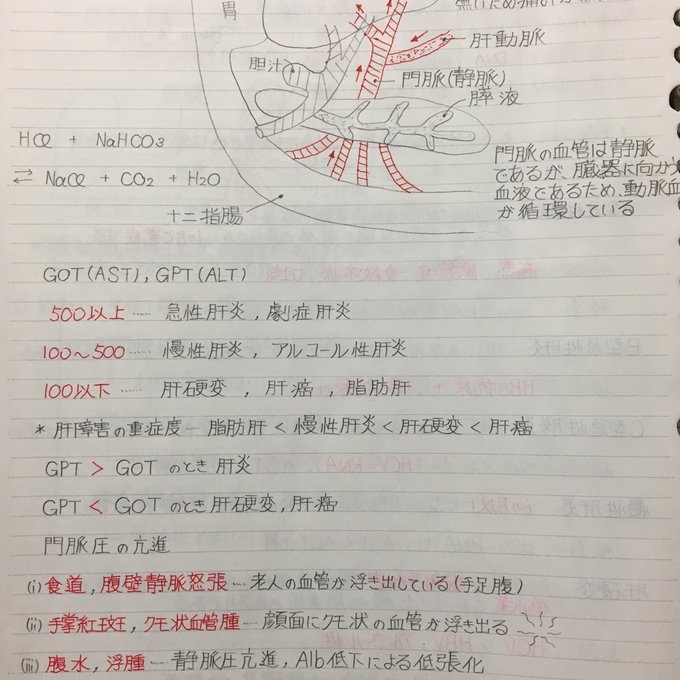 胃
肝動脈
胆汁
門脈(静脈)
膵液
HCl + NaHCO3
⇄ NaCl + CO2 + H2O
門脈の血管は静脈
であるが、臓器に向かう
血液であるため、動脈血
が循環している
十二指腸
GOT(AST), GPT(ALT)
500以上 …… 急性肝炎, 劇症肝炎
100〜500 …… 慢性肝炎, アルコール性肝炎
100以下 …… 肝硬変, 肝癌, 脂肪肝
* 肝障害の重症度 … 脂肪肝 < 慢性肝炎 < 肝硬変 < 肝癌
GPT > GOT のとき 肝炎
GPT < GOT のとき 肝硬変, 肝癌
門脈圧の亢進
(i) 食道, 腹壁静脈怒張 … 老人の血管が浮き出している(手足腹)
(ii) 手掌紅斑, クモ状血管腫 … 顔面にクモ状の血管が浮き出る
(iii) 腹水, 浮腫 … 静脈圧亢進, Alb低下による低張化